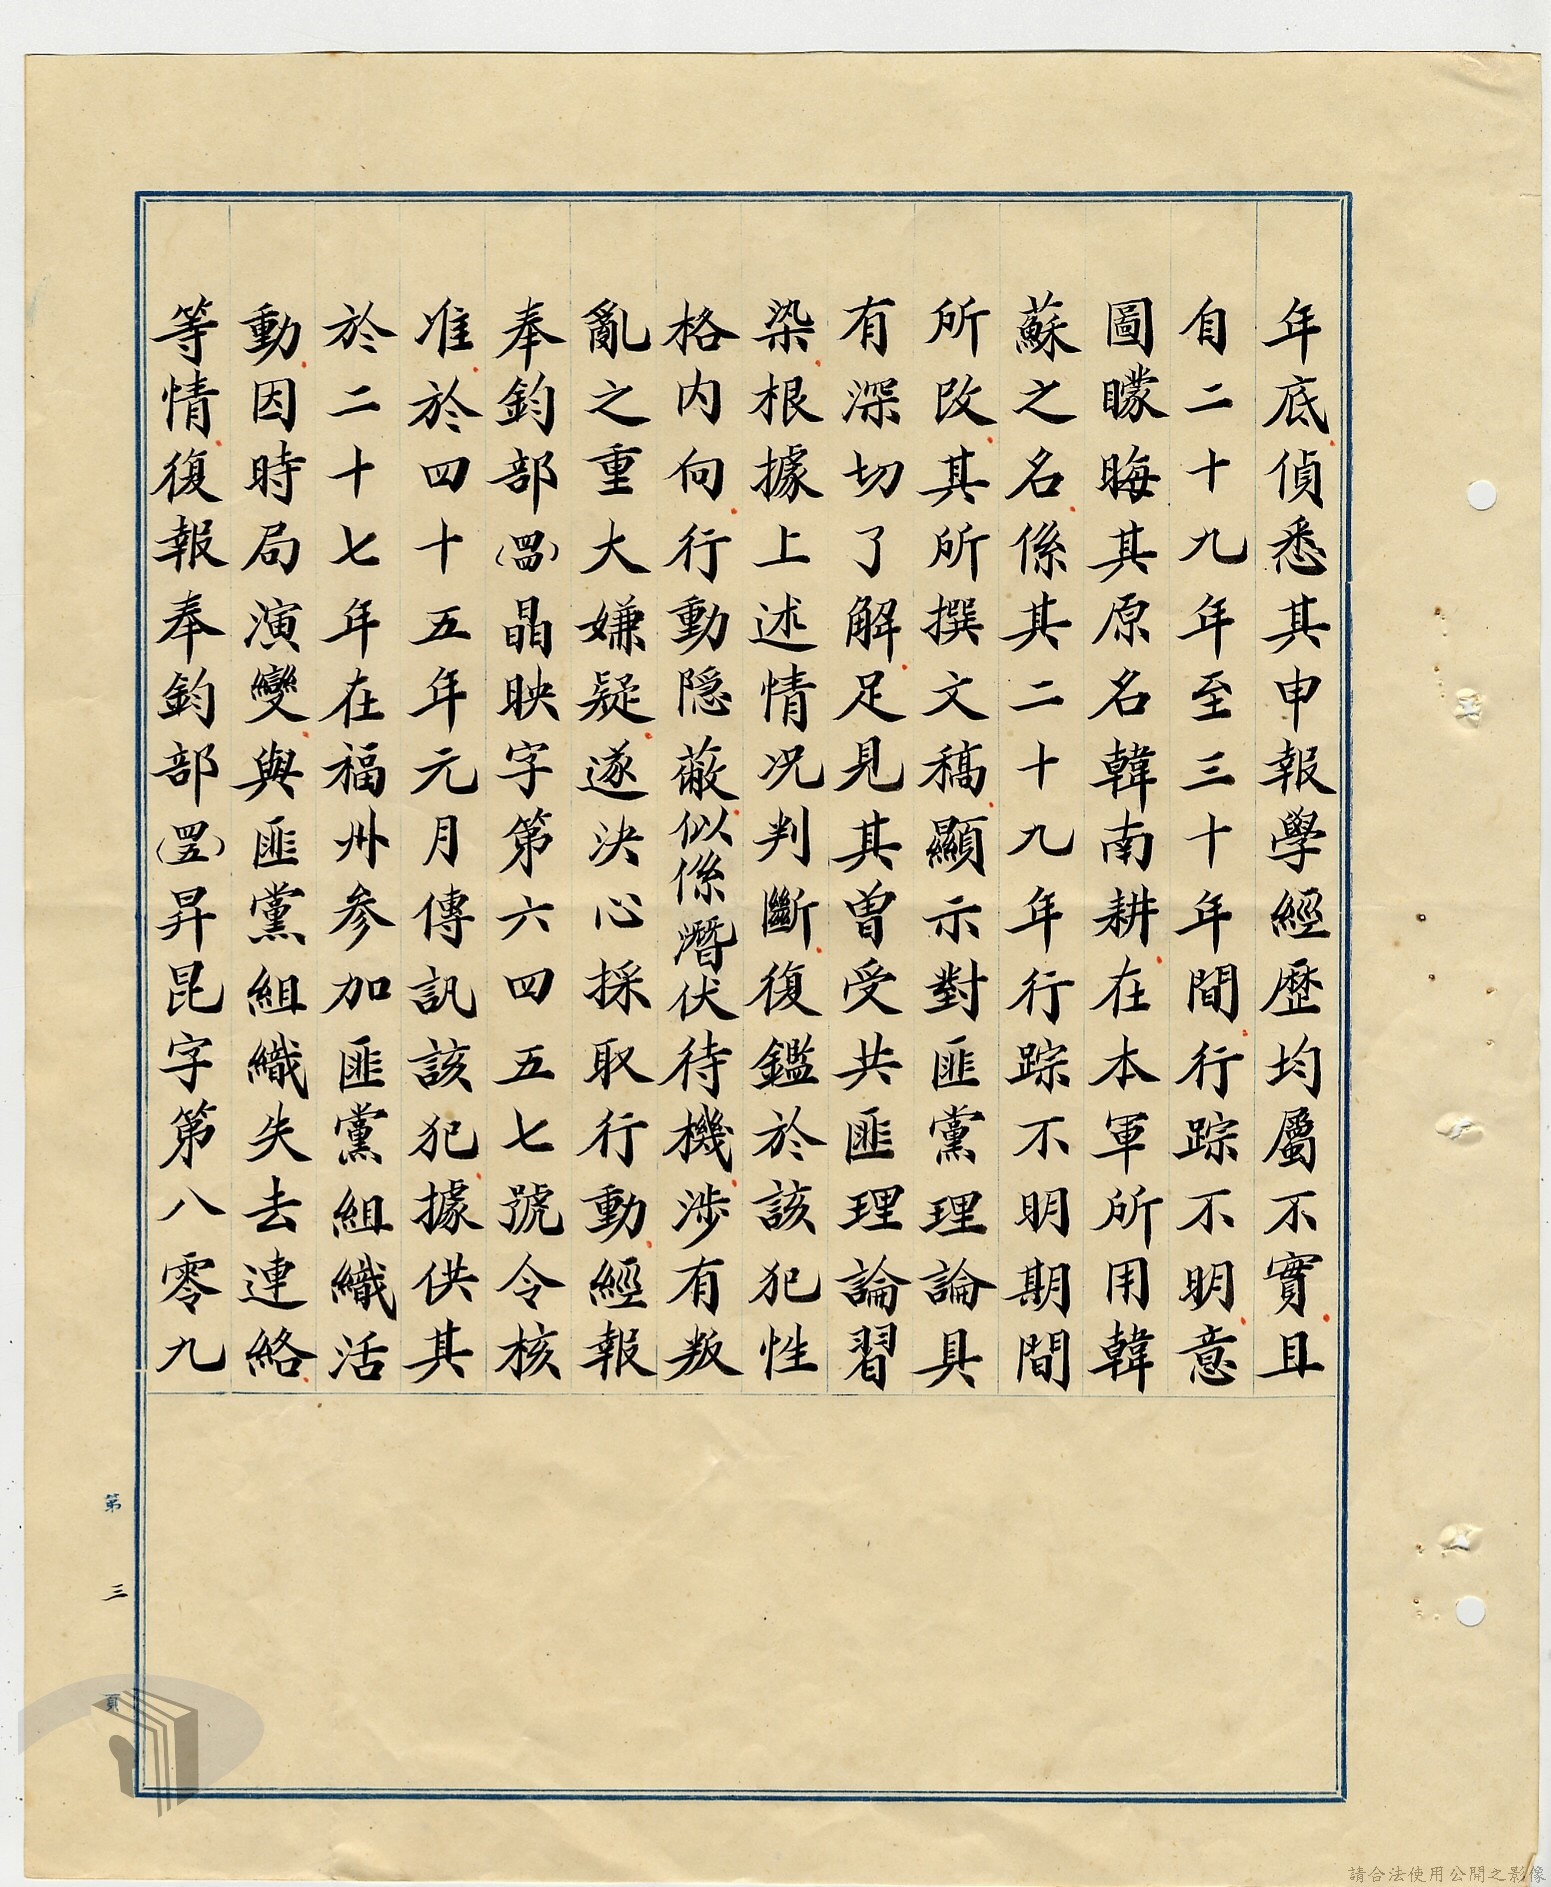 年底偵悉其申報學經歷均屬不實且
自二十九年至三十年間行踪不明意
圖矇晦其原名韓南耕在本軍所用韓
蘇之名係其二十九年行踪不明期間
所改其所撰文稿顯示對匪黨理論具
有深切了解足見其曾受共匪理論習
染根據上述情况判斷復鑑於該犯性
格内向行動隐蔽似係潛伏待機涉有叛
亂之重大嫌疑遂決心採取行動經報
奉鈞部(四四)晶映字第六四五七號令核
准於四十五年元月傳訊該犯據供其
於二十七年在福州参加匪黨組織活
動因時局演變與匪黨組織失去連絡
等情復報奉鈞部(四五)昇昆字第八零九
第三頁
請合法使用公開之影像